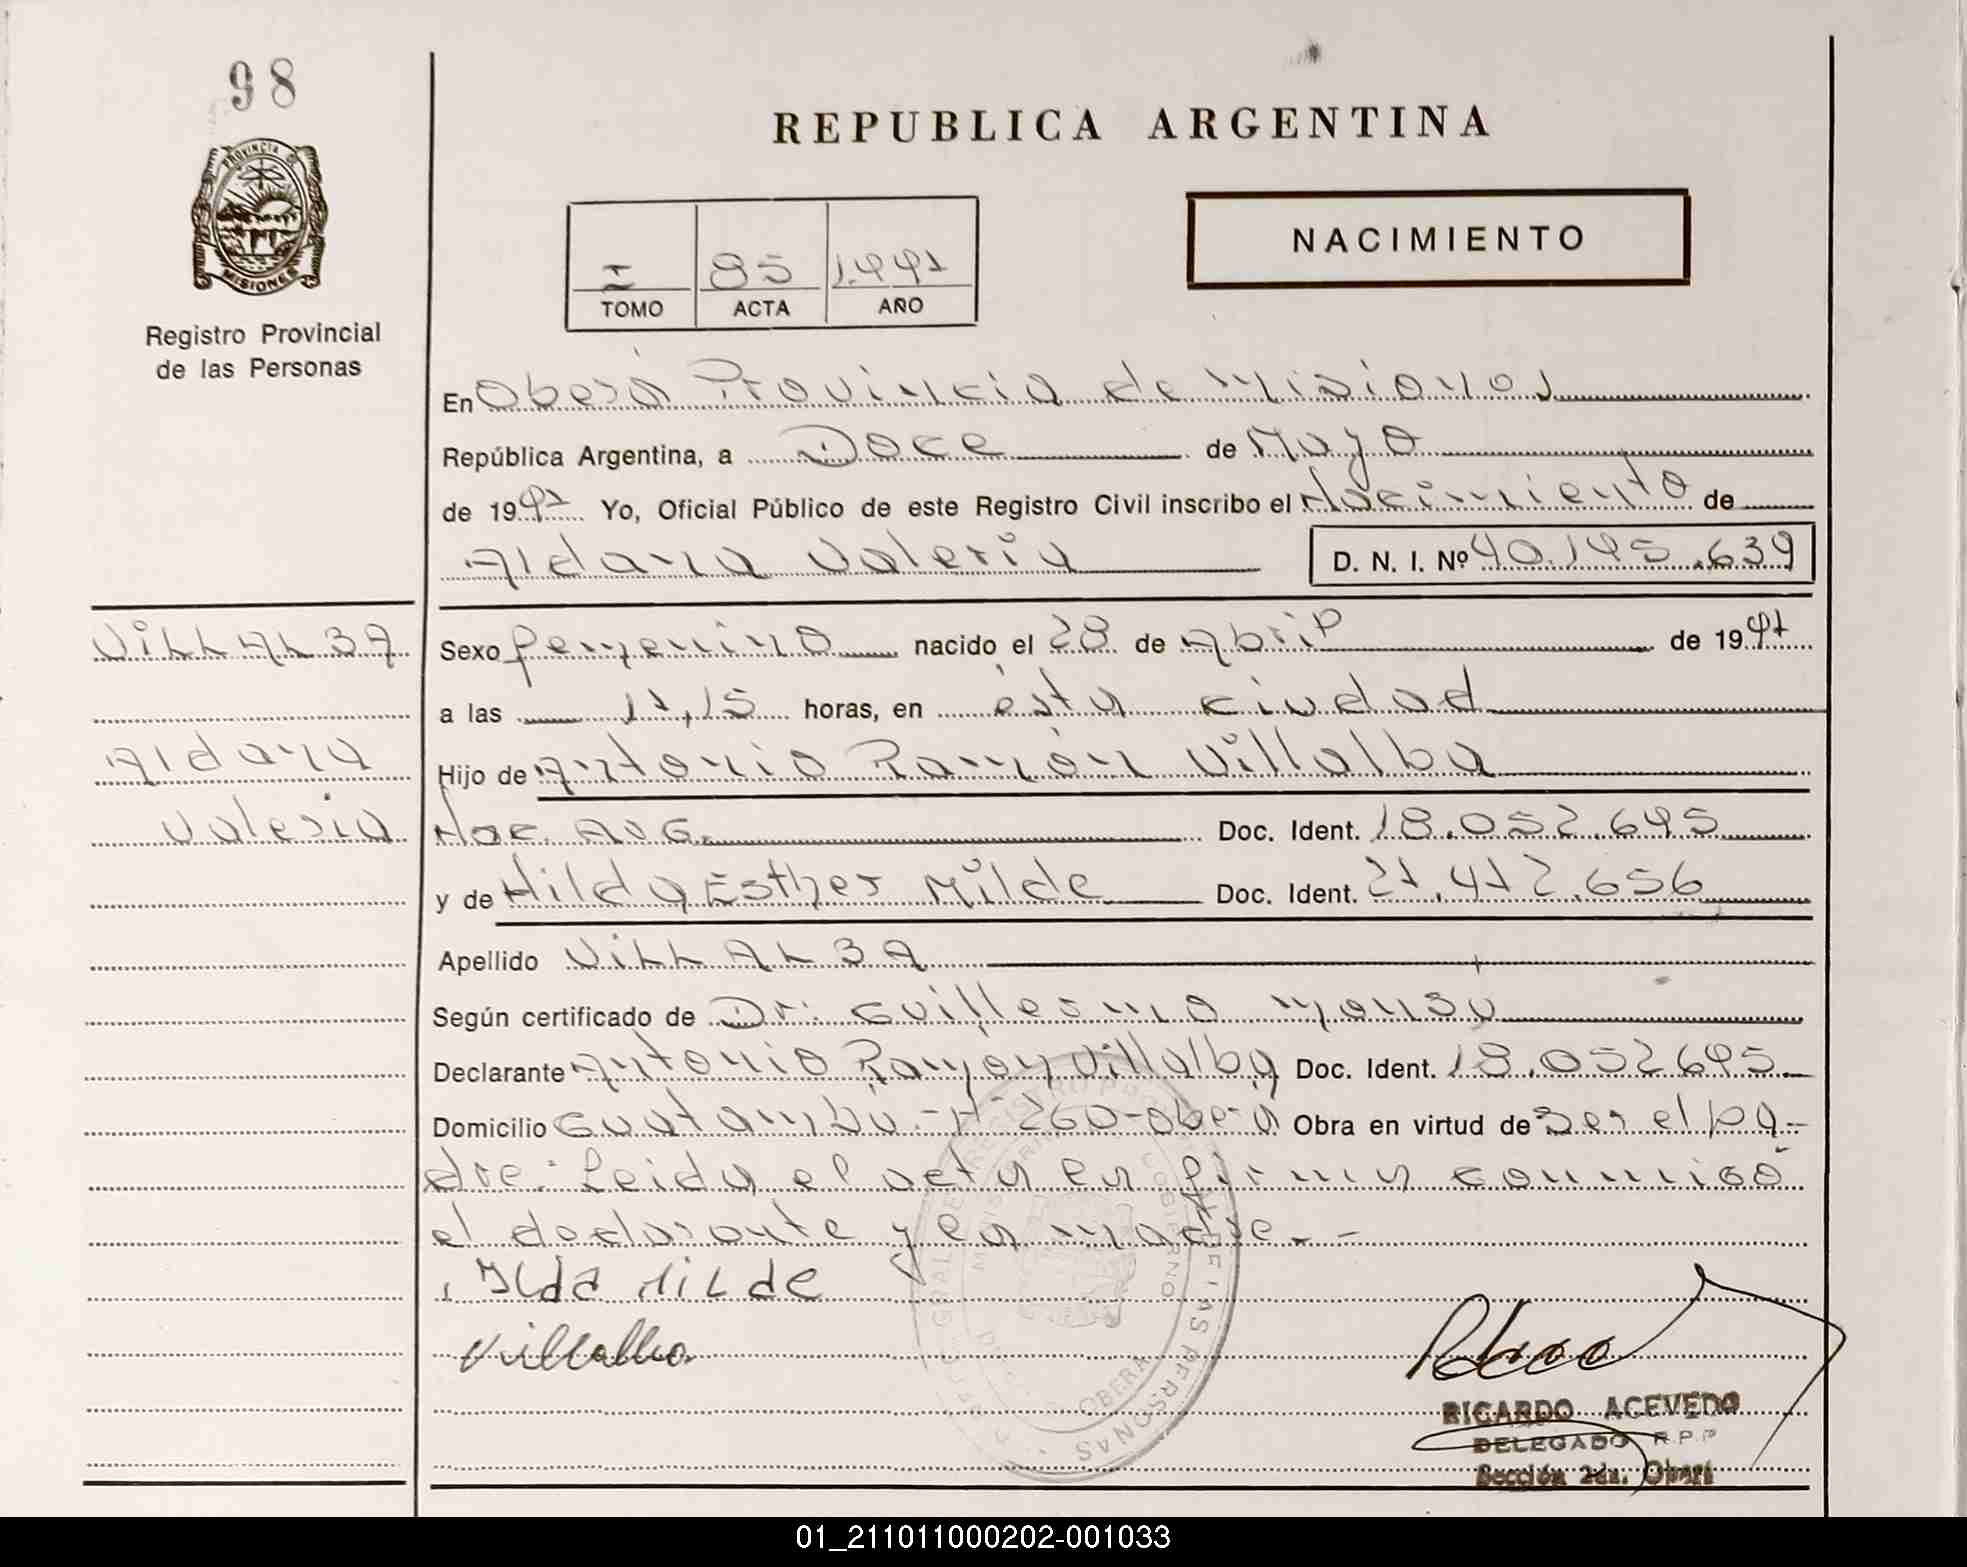 98
REPUBLICA ARGENTINA
PROVINCIA DE
MISIONES
NACIMIENTO
I 85 1.997
TOMO ACTA AÑO
Registro Provincial
de las Personas
En Oberá Provincia de Misiones
República Argentina, a Doce de Mayo
de 1997 Yo, Oficial Público de este Registro Civil inscribo el Nacimiento de
Aldana Valeria D. N. I. Nº 40.195.639
VILLALBA
Aldana
Valeria
Sexo femenino nacido el 28 de Abril de 1997
a las 17,15 horas, en ésta ciudad
Hijo de Antonio Ramón Villalba
Nac. ARG. Doc. Ident. 18.052.695
y de Hilda Esther Milde Doc. Ident. 27.472.656
Apellido VILLALBA
Según certificado de Dr: Guillermo
Declarante Antonio Ramón Villalba Doc. Ident. 18.052695
Domicilio Guatambú - Nº 260-Oberá Obra en virtud de ser el pa-
dre: Leida el acta la firma conmigo
el declarante y la madre. -
Ilda Milde
Villalba
RICARDO ACEVEDO
DELEGADO R.P.P
Sección 2da. Oberá
01_211011000202-001033